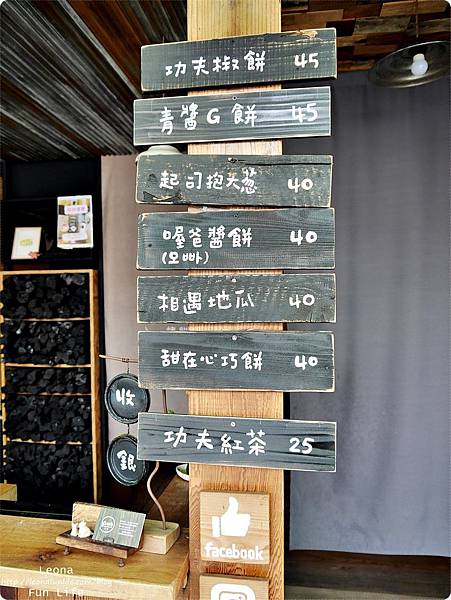 功夫椒餅 45
青醬G餅 45
起司抱大蔥 40
喔爸醬餅 40
(오빠)
相遇地瓜 40
甜在心巧餅 40
功夫紅茶 25
收
銀
facebook
Leona
Fun Life